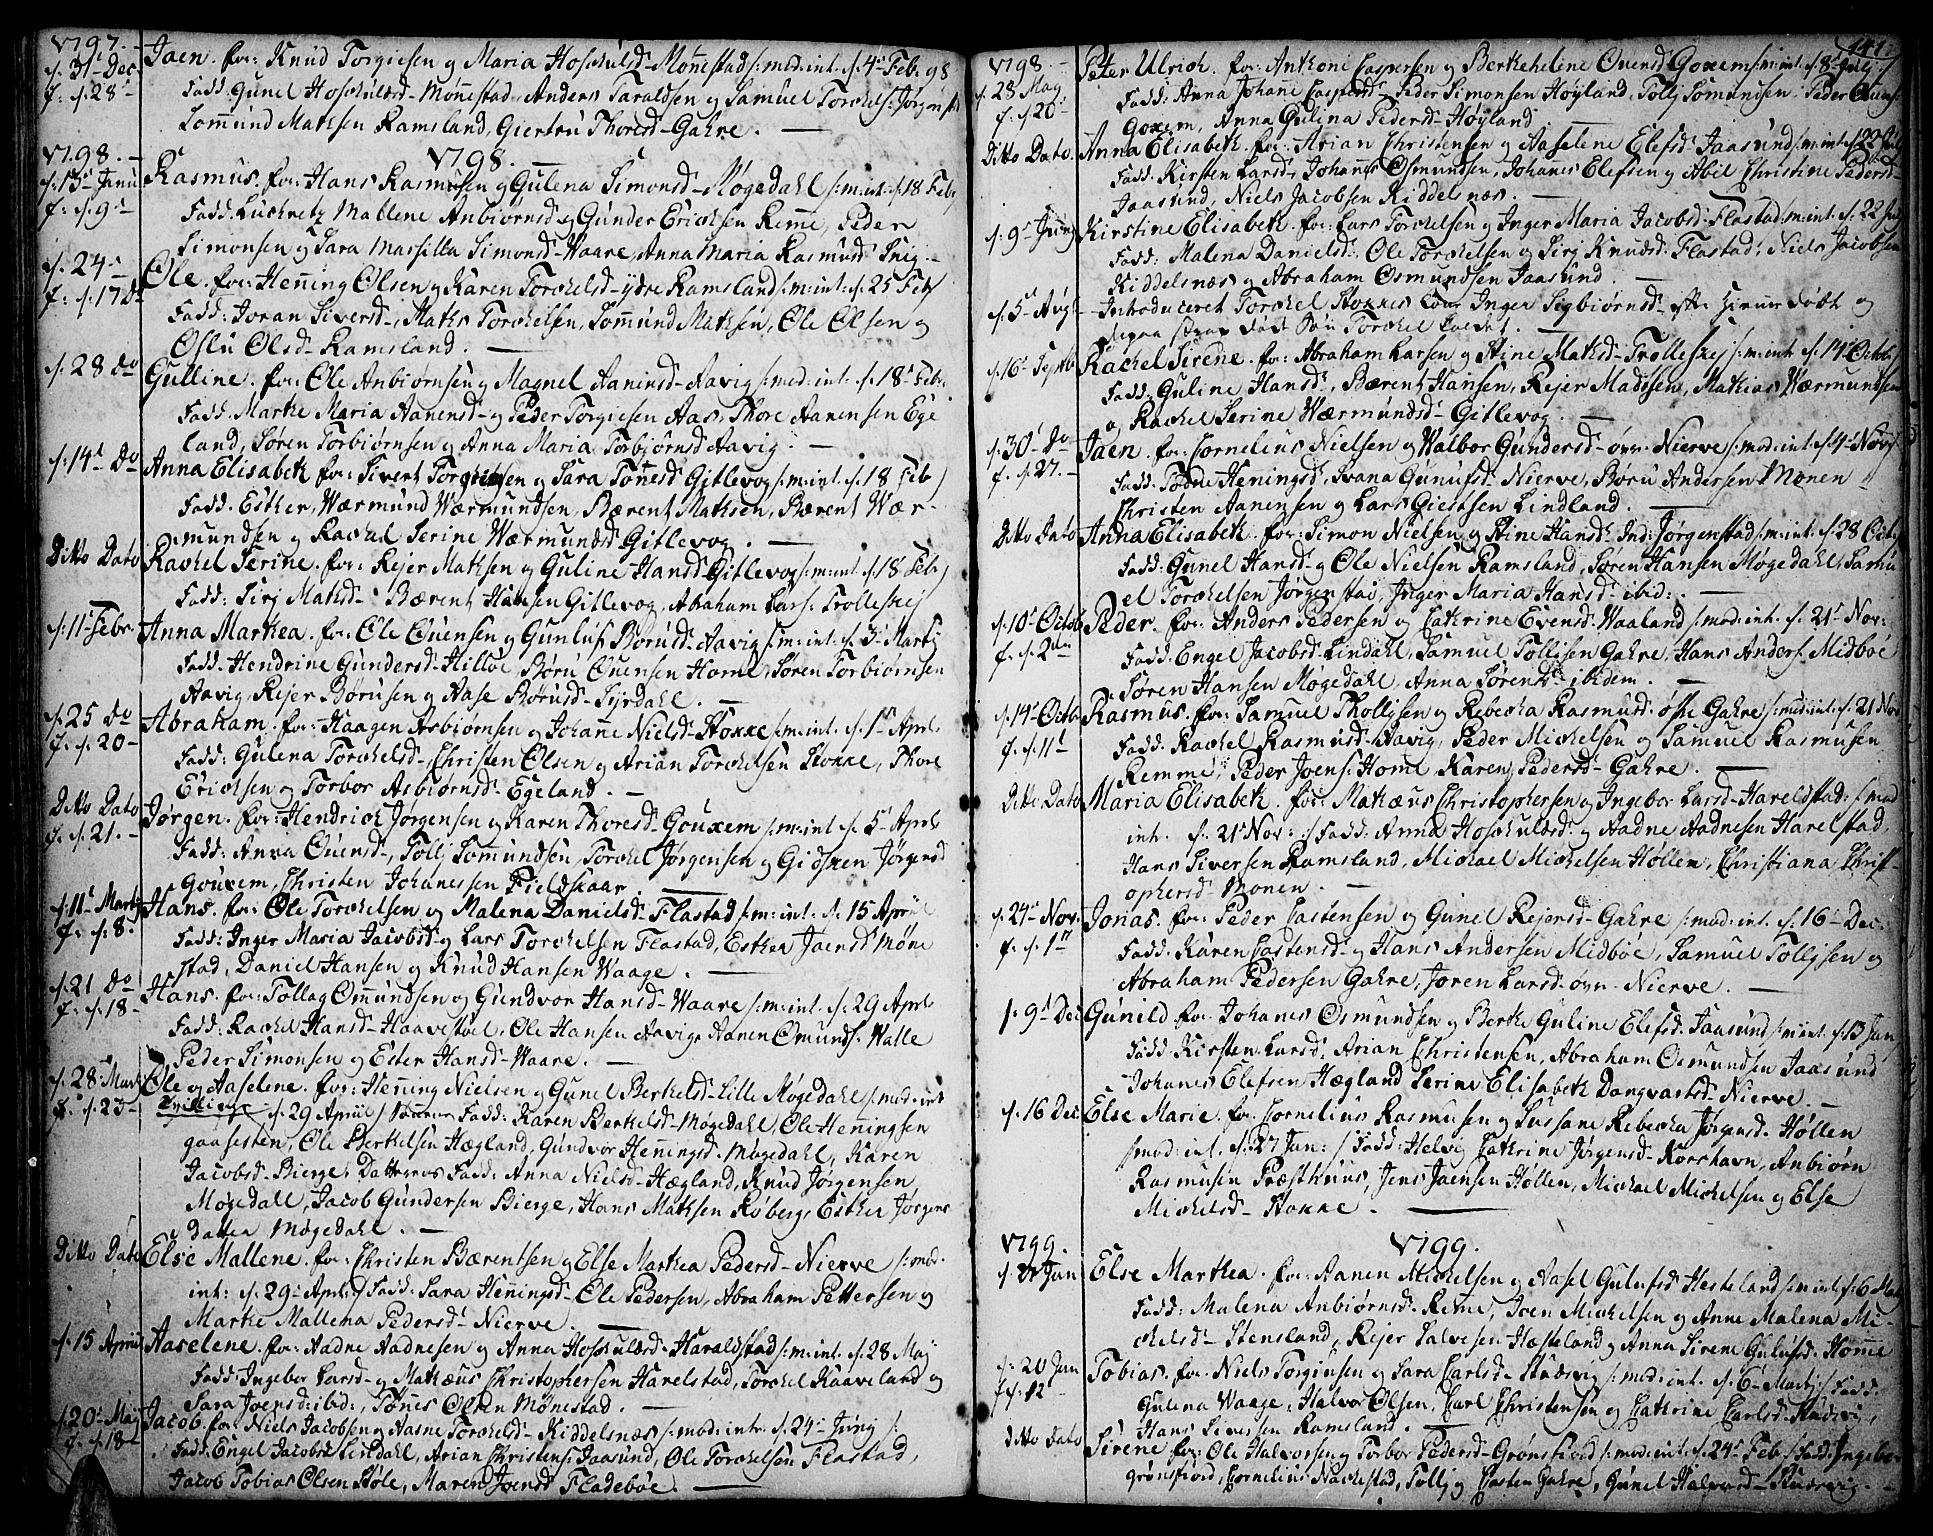 1797.
d. 31t Dec.
f. d. 28t
Jaen. for: Knud Torgiesen og Maria Hoskulsd. Mønestad /:med: int. d. 4t Feb. 98
Fadd: Gunel Hoskulsd. Mønnestad, Anders Taraldsen og Samuel Torkels: Jørgenst:
Lommund Mathsen Ramsland, Giertru Thoresd. Gahre.
1798.
1798.
d. 13t Janu
f. d. 9t
Rasmus. for: Hans Rasmusen og Gulena Simonsd. Møgedahl /:m:int. d. 18 Feb.
Fadd: Mallene Anbiørnsd. og Gunder Erichsen Remme, Peder
Simonsen og Sara Marsilla Simonsd. Waare, Anna Maria Rasmusd. Snig.
d. 24t
f. d. 17 do
Ole. for: Henning Olsen og Karen Torkelsd. ydre Ramsland /:m:int. d. 25 Feb.
Fadd: Joran Siversd., Maths Torkelsen, Lommund Mathsen, Ole Olsen og
Oslu Olsd. Ramsland.
d. 28 do
Gulline. for: Ole Anbiørnsen og Magnel Aanensd. Aavig /:med:int. d. 18t Feb.
Fadd: Marthe Maria Aanensd. og Peder Torgiesen Aas, Thore Aanensen Ege
land, Søren Torbiørnsen og Anna Maria Torbiørnsd. Aavig.
d. 14t do
Anna Elisabeth for: Sivert Torgiersen og Sara Tønesd. Gitlevog /:m:int. d. 18 Feb.
Fadd: Esther, Wærmund Wærmundsen, Bærent Mathsen, Bærent Wær-
mundsen og Rachel Serine Wærmundsd. Gitlevog.
Ditto Dato
Rachel Serine. for: Rejer Mathsen og Guline Hansd. Gitlevog /:m:int. d. 18 Feb.
Fadd: Sirj Mathsd. Bærent Hansen Gitlevog, Abraham Lars: Trolleskej
d. 11t Febr.
Anna Marthea. for: Ole Ouensen og Gunluf Børusd. Aavig /:m:int. d. 3t Martj
Fadd: Hendrine Gundersd. Hilløe, Børu Ouensen Home, Søren Torbiørnsen
Aavig, Rejer Børusen og Aase Børusd. Syrdahl.
d. 25 do
f. d. 20
Abraham. for: Haagen Asbiørnsen og Johanne Nielsd. Stokke /:med:int. d. 1t April
Fadd: Gulena Torkelsd., Christen Olsen og Arian Torkelsen Stokke, Thore
Erichsen og Torbor Asbiørnsd. Egeland.
Ditto Dato
f. d. 21.
Jørgen. for: Hendrich Jørgensen og Karen Thoresd. Gouxem /:m:int d. 5t April
Fadd: Anna Ouensd., Tollj Lommundsen, Torkel Jørgensen og Gidsken Jørgensd
Gouxem, Christen Johanessen Fieldskaar.
d. 11t Martj
f. d. 8.
Hans. for: Ole Torkelsen og Malena Danielsd. Flastad /:m:int. d. 15 Apriil
Fadd: Inger Maria Jacobsd. og Lars Torkelsen Flastad, Esther Jaensd. Møne
stad, Daniel Hansen og Knud Hansen Waage.
d. 21 do
f. d. 18
Hans. for: Tollag Omundsen og Gundvor Hansd. Waare /:m:int. d. 29 April
Fadd: Rachel Hansd. Haavestøel, Ole Hansen Aavig, Aanen Omunds. Walle
Peder Simonsen og Ester Hansd. Waare.
d. 28 Martj
f. d. 23
Ole og Aaselene. for: Henning Nielsen og Gunel Berthelsd. Lille Møgedahl /:med:int
Tvillinge d. 29 Apriil / Fadd: Karen Berthelsd. Møgedahl, Ole Heningsen
gaasesten, Ole Berthelsen Hægland, Gundvor Henningsd. Møgedahl, Karen
Jacobsd. Bierge, Datterens Fadd: Anna Nielsd. Hægland, Knud Jørgensen
Møgedahl, Jacob Gundersen Bierge, Hans Mathsen Røberg, Esther Jørgens
datter Møgedahl.
Ditto Dato
Else Mallene. for: Christen Bærentsen og Else Marthea Pedersd. Nierve /:med.
int: d. 29 April / Fadd: Sara Henningsd. Ole Pedersen, Abraham Pettersen og
Marthe Mallena Pedersd. Nierve.
d. 15 Apriil
Aaselene. for: Aadne Aadnesen og Anna Hoskulsd. Haraldstad /:m:int. d. 28 Maj
Fadd: Ingebor Larsd. og Mathæus Christophersen Harelstad, Torkel Kaaveland og
Sara Joensd. ibid, Tønes Olsen Mønestad.
d. 20t Maj
f. d. 18t
Jacob. for: Niels Jacobsen og Aasne Torkelsd. Kiddelsnæs /:mod:int. d. 24t Junij /:
Fadd: Engel Jacobsd. Lindahl, Arian Christens: Jaasund, Ole Torkelsen Flastad,
Jacob Tobias Olsen Støle, Maren Joensd. Fladebøe.
141
1798.
d. 28 Maj
f. d. 20
Peter Ulrich. for: Anthoni Caspersen og Berthe Helene Ouensd. Goxem /:m:int. d. 8t Julij
Fadd: Anna Johane Caspersd. Peder Simonsen Høyland, Tollj Lomundsen, Peder Ouens:
Goxem, Anna Gulina Pedersd. Høyland
Ditto Dato.
Anna Elisabeth. for: Arian Christensen og Aaselene Elefsd. Jaasund /:m:int. d. 22 Julj
Fadd: Kirsten Larsd., Johannes Osmundsen, Johanes Elefsen og Abil Christine Pedersd.
Jaasund, Niels Jacobsen Kiddelsnæs.
d. 9t Junij
Kirstine Elisabeth. for: Lars Torkelsen og Inger Maria Jacobsd. Flastad /:m:int. d. 22 Julj
Fadd: Malena Danielsd. Ole Torkelsen og Sirj Knudsd. Flastad, Niels Jacobsen
Kiddelsnæs og Abraham Osmundsen Jaasund.
d. 5t Avgt
Introduceret Torkel Stokkes Inger Sigbiørnsd. efter hjemme døbt og
Søn Torkel kaldet.
d. 16t Septb
Rachel Sirene. for: Abraham Larsen og Stine Mathsd. Trolleskej /:m:int d. 14t Octob.
Fadd: Guline Hansd., Bærent Hansen, Rejer Madtsen, Mathias Wærmundsen
og Rachel Serine Wærmundsd. Gitlevog.
d. 30t do
f. d. 27.
Jaen. for: Cornelius Nielsen og Walbor Gundersd. øvr. Nierve /:mod:int. d. 4t Novb
Fadd: Todne Heningsd., Svana Gunufsd. Nierve, Børu Andersen Monen
Christen Aanensen og Lars Giertsen Lindland.
Ditto Dato
Anna Elisabeth. for: Simon Nielsen og Stine Hansd. Ind: Jørgenstad /:m:int. d. 28 Octb.
Fadd: Gunel Hansd. og Ole Nielsen Ramsland, Søren Hansen Møgedahl, Samu
el Torkelsen Jørgenstad, Inger Maria Hansd. ibid:.
d. 10t Octob.
f. d. 2den
Peder. for: Anders Pedersen og Cathrine Evensd. Waaland /:mod:int. d. 21t Nov:
Fadd: Engel Jacobsd. Lindahl, Samuel Tollisen Gahre, Hans Anders: Midbøe
Søren Hansen Møgedahl, Anna Sørensd. ibidem.
d. 14t Octb.
f. d. 11t
Rasmus. for: Samuel Thollysen og Rebecha Rasmusd. øfre Gahre /:mod:int. d. 21 Nov
Fadd: Rachel Rasmusd. Aavig, Peder Michelsen og Samuel Rasmusen
Remme, Peder Joens: Home, Karen Pedersd. Gahre.
Ditto Dato
Maria Elisabeth. for: Mathæus Christophersen og Ingebor Larsd. Hareldstad: /:mod
int. d. 21t Nov: :/ Fadd: Anna Hoskulsd. og Aadne Aadnesen Harelstad,
Hans Siversen Ramsland, Michael Michelsen Høllen, Christiana Christ-
ophersd. Monen.
d. 24t Nov.
f. d. 1te
Jonas. for: Peder Castensen og Gunel Rejersd. Gahre /:mod:int. d. 16t Dec.
Fadd: Karen Castensd. og Hans Andersen Midbøe, Samuel Tollysen og
Abraham Pedersen Gahre, Joren Larsd. øvr. Nierve.
d. 9t Dec
Gunild for: Johanes Osmundsen og Berthe Guline Elefsd. Jaasund /:m:int. d. 13 Jan
Fadd: Kirsten Larsd. Arian Christensen, Abraham Osmundsen Jaasund
Johanes Elefsen Hægland, Serine Elisabeth Danqvartsd. Nierve.
d. 16 Dec.
Else Marie. for: Cornelius Rasmusen og Sussane Rebecka Jørgensd. Høllen
/:mod:int. d. 27 Jan: / Fadd: Helvig Cathrine Jørgensd. Korshavn, Anbiørn
Rasmusen Præsthuus, Jens Jaensen Høllen, Michael Michelsen og Else
Michelsd. Stokke.
1799.
1799.
d. Jan
Else Marthea. for: Aanen Michelsen og Aasel Gulufsd. Hesteland /:m:int. d. 6 Martj
Fadd: Malena Anbiørnsd. Reme, Joen Michelsen og Anne Malena Mi-
chelsd. Stensland, Rejer Salvesen Hæsteland og Anna Sirene Gulufsd. Homme
d. 20 Jan
f. d. 12
Tobias. for: Niels Torgiusen og Sara Carlsd. Studsvig /:mod:int. d. 6t Martj / Fadd:
Gulena Waage, Halvor Olsen, Carl Christensen og Cathrine Carlsd. Studsvig,
Hans Siversen Ramsland.
Ditto Dato
Sirene for: Ole Halvorsen og Torbor Pedersd. Grønsfiord /:mod:int. d. 24t Feb. / Fadd: Ingebor
Grønsfiord, Cornelius Nackestad, Tollj og Casten Gahre, Gunel Halvorsd. Studsvig.